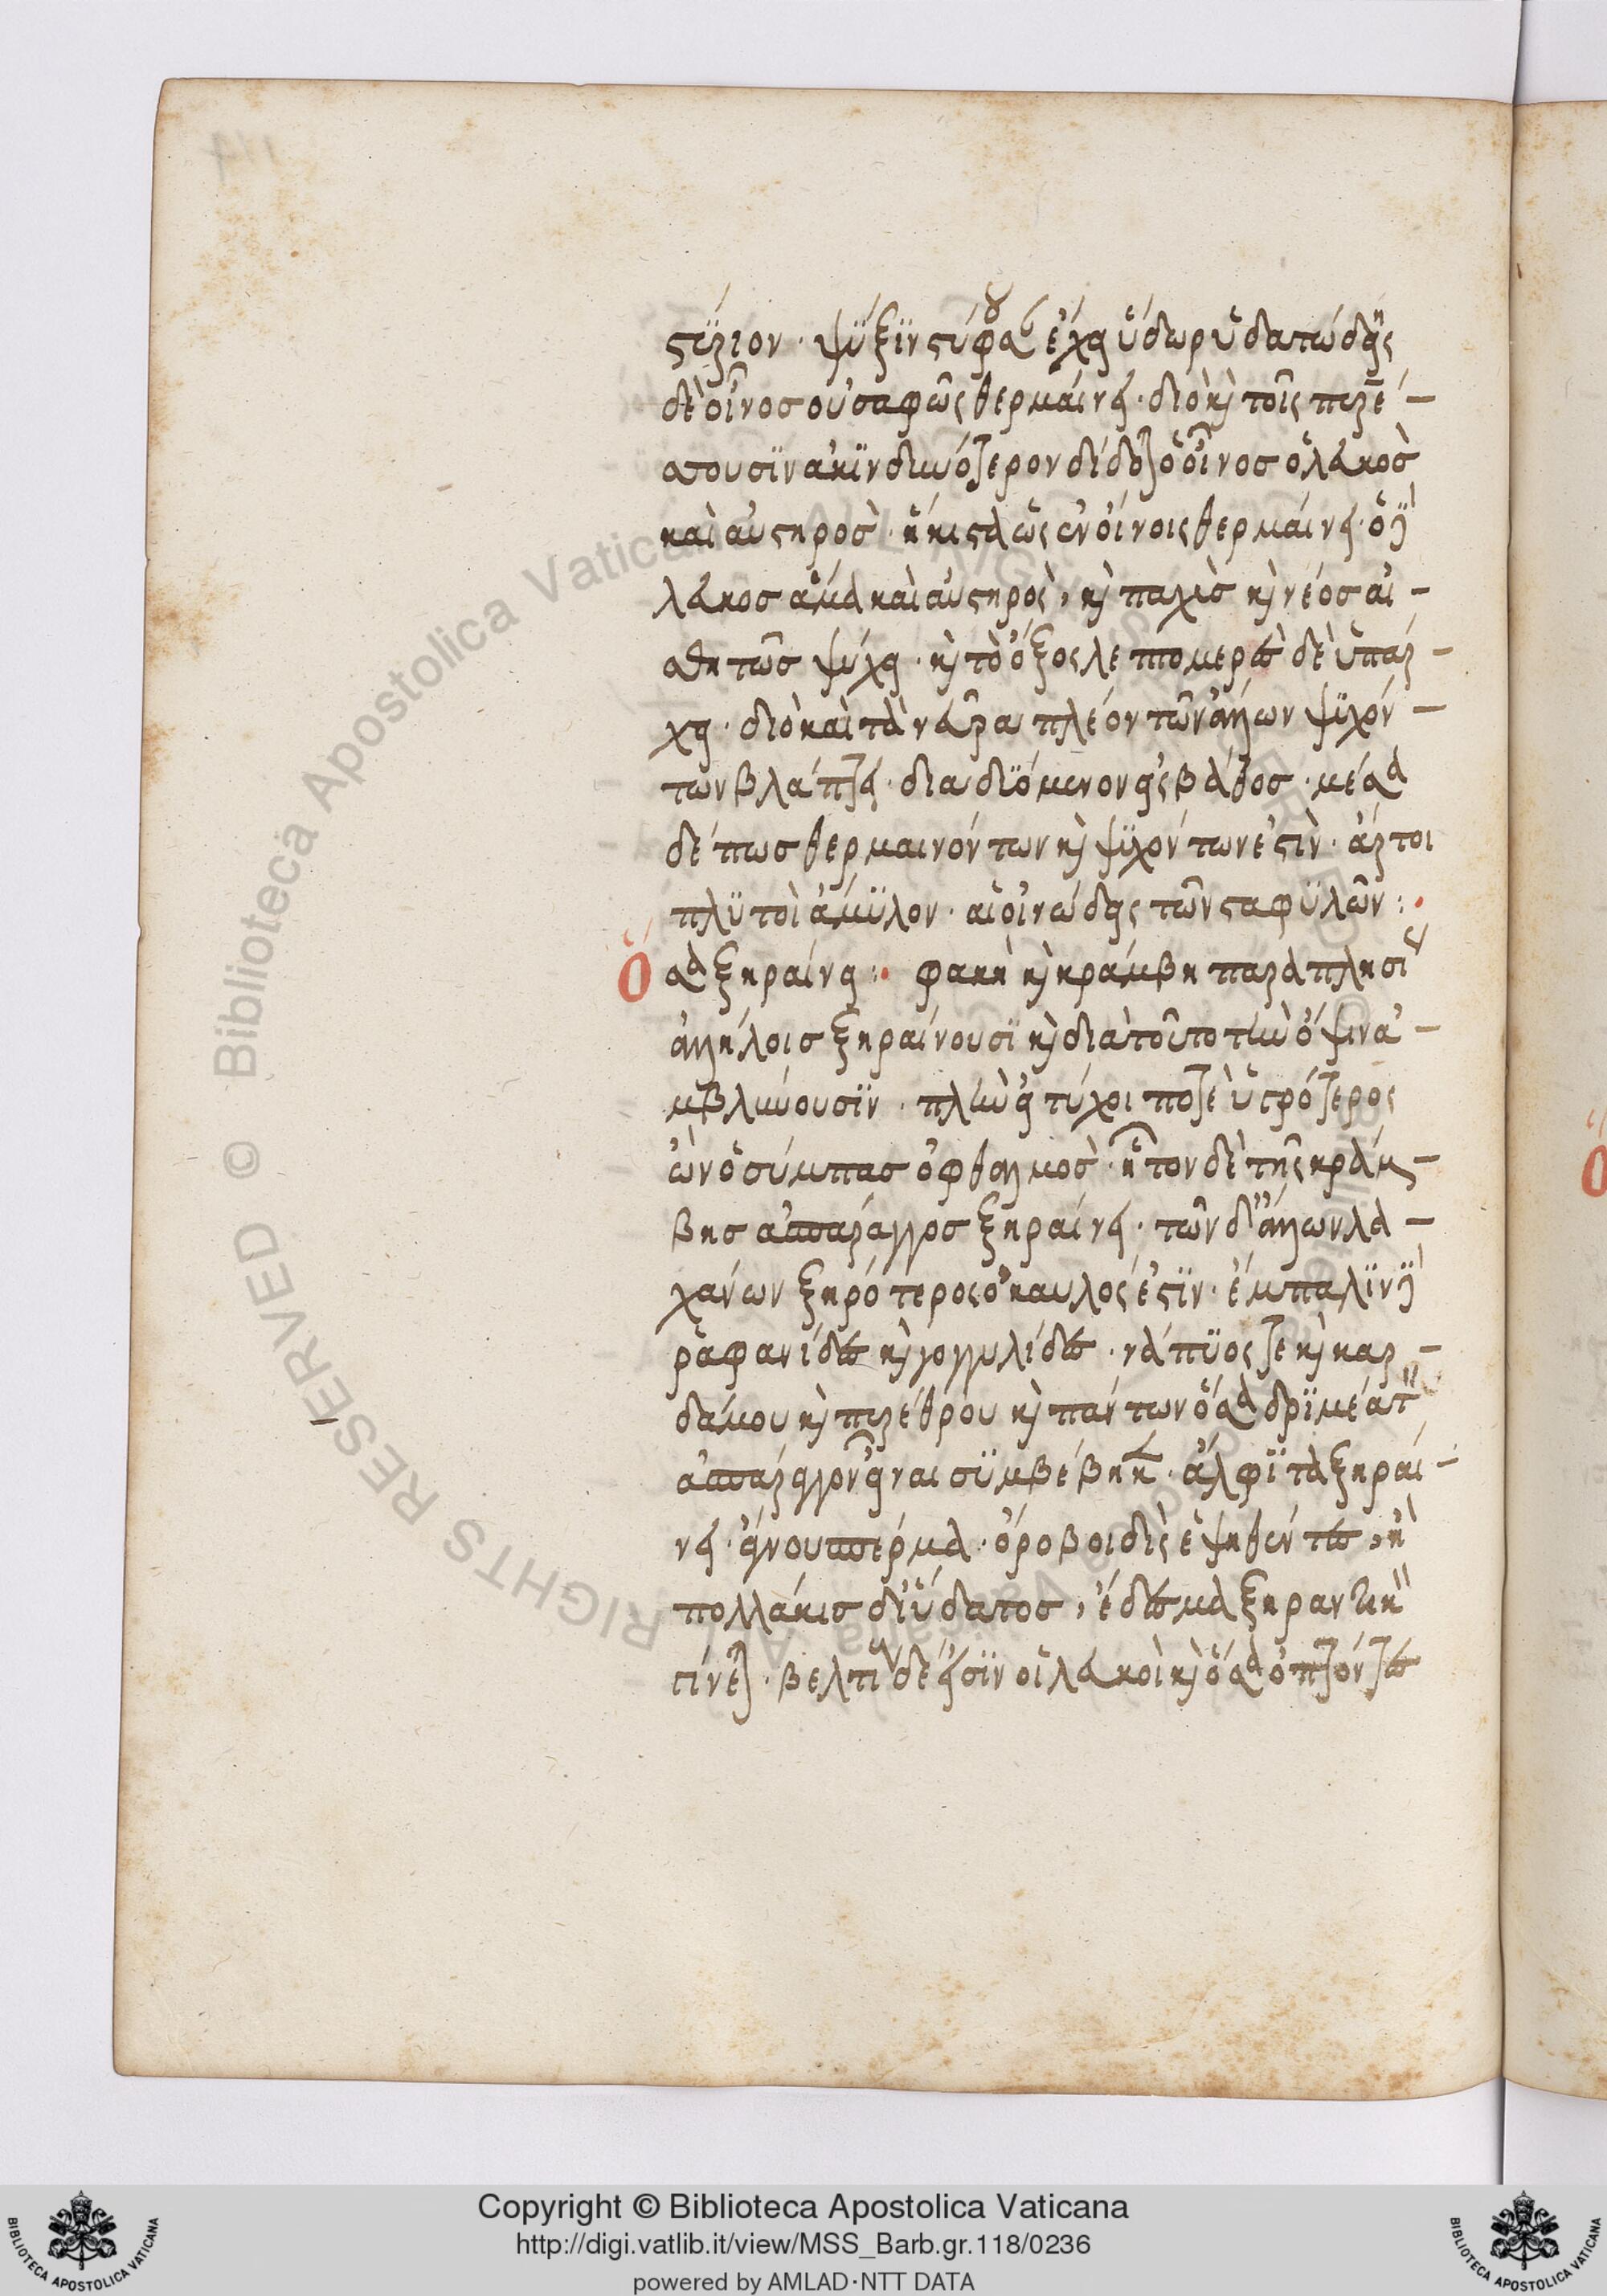 ςάριον · ψύξιν στύφουσαν ἔχει ὕδωρ ὑδατώδεις
δὲ οἶνος οὐ σαφῶς θερμαίνει · διὸ καὶ τοῖς πυρέ–
σσουσιν ἀκινδυνότερον δίδοται ὁ οἶνος ὁ λευκὸς
καὶ αὐστηρὸς · ἥκιστα ὡς ἐν οἴνοις θερμαίνει · ὁ δὲ
λευκὸς ἅμα καὶ αὐστηρὸς, καὶ παχὺς καὶ νέος αἰ–
σθητῶς ψύχει · καὶ τὸ ὄξος λεπτομερὲς δὲ ὑπάρ–
χει · διὸ καὶ τὰ νεῦρα πλέον τῶν ἄλλων ψυχόν–
των βλάπτει · διαδυόμενον εἰς βάθος · μέσα
δέ πως θερμαινόντων καὶ ψυχόντων ἐστὶν · ἄρτοι
πλυτοὶ ἄμυλον · αἱ οἰνώδεις τῶν σταφυλῶν :·
Ὅσα ξηραίνει :· φακὴ καὶ κράμβη παραπλησίως
ἀλλήλοις ξηραίνουσι καὶ διὰ τοῦτο τὴν ὄψιν ἀ–
μβλύνουσιν · πλὴν εἰ τύχοι ποτὲ ὑγρότερος
ὢν ὁ σύμπας ὀφθαλμὸς · ἧττον δὲ τῆς κράμ–
βης ἀσπάραγος ξηραίνει · τῶν δ' ἄλλων λα–
χάνων ξηρότερος ὁ καυλός ἐστιν · ἔμπαλιν δὲ
ῥαφανίδος καὶ γογγυλίδος · νάπυός τε καὶ καρ–
δάμου καὶ πυρέθρου καὶ πάντων ὅσα δριμέα τὸν
ἀσπάραγον εἶναι συμβέβηκεν · ἄλφιτα ξηραί–
νει · λίνου σπέρμα · ὄροβοι δὶς ἑψηθέντες, ἢ
πολλάκις δι' ὕδατος, ἔδεσμα ξηραντικὸν
γίνεται · βελτίους δέ εἰσιν οἱ λευκοὶ καὶ ὅσα ὀπτῶντες
Copyright © Biblioteca Apostolica Vaticana
http://digi.vatlib.it/view/MSS_Barb.gr.118/0236
powered by AMLAD·NTT DATA